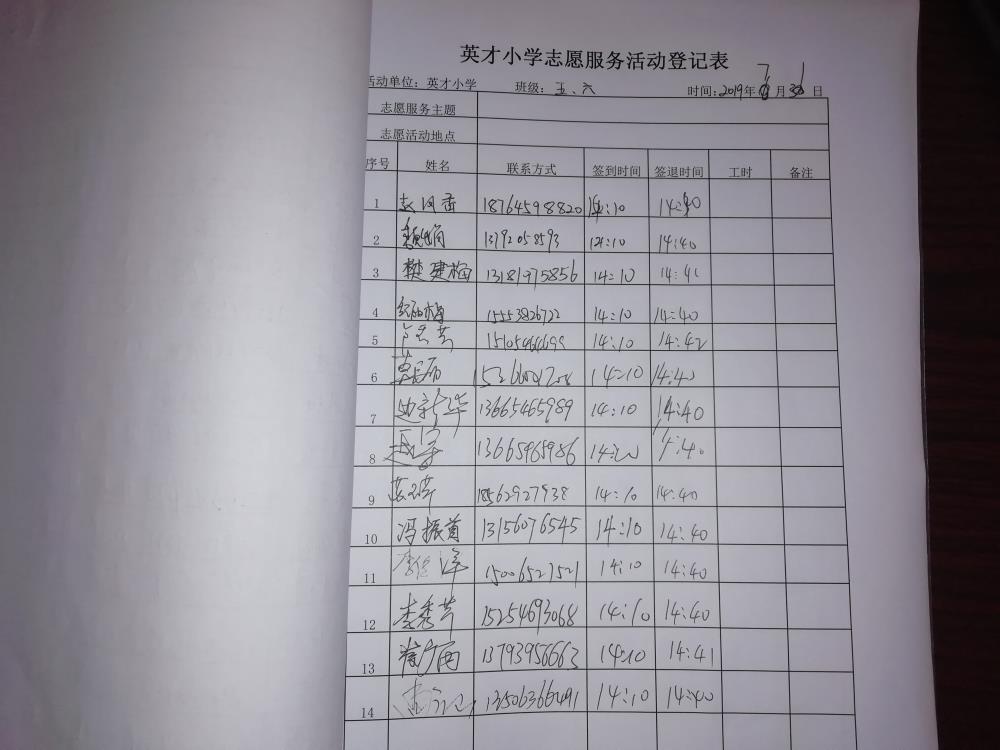 英才小学志愿服务活动登记表
活动单位：英才小学 班级：五、六 时间：2019年 月 日
志愿服务主题
志愿活动地点
序号 姓名 联系方式 签到时间 签退时间 工时 备注
1 18764598820 14:10 14:40
2 13792058593 14:10 14:40
3 樊建梅 13181975856 14:10 14:41
4 15553826722 14:10 14:40
5 14:10 14:42
6 14:10 14:40
7 13665465989 14:10 14:40
8 13665965986 14:40
9 18562927938 14:10 14:40
10 冯振首 13156076545 14:10 14:40
11 15006527521 14:10 14:40
12 李秀芹 15254693068 14:10 14:40
13 13793956663 14:10 14:41
14 13506366491 14:10 14:40